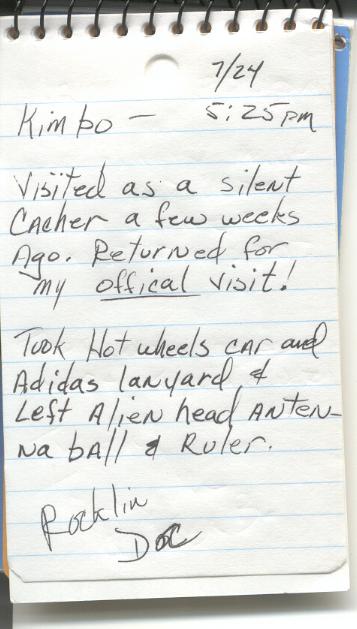 7/24
Kimbo - 5:25pm
Visited as a silent
Cacher a few weeks
Ago. Returned for
my offical visit!
Took Hot wheels car and
Adidas lanyard &
Left Alien head Anten-
na ball & Ruler.
Rocklin
Doc